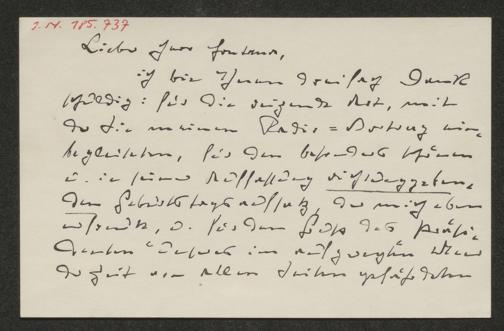 I.N. 185.737
Lieber Herr Fontana,
ich bin Ihnen dreifach Dank
schuldig: für die reizende Art, mit
der Sie meinen Radio=Vortrag ein-
begleiteten, für den besonders schönen
u. in seiner Auffassung richtunggeben-
den Geburtstagsaufsatz, der mich eben
erfreut, u. für den des
im
der Zeit von allen Seiten